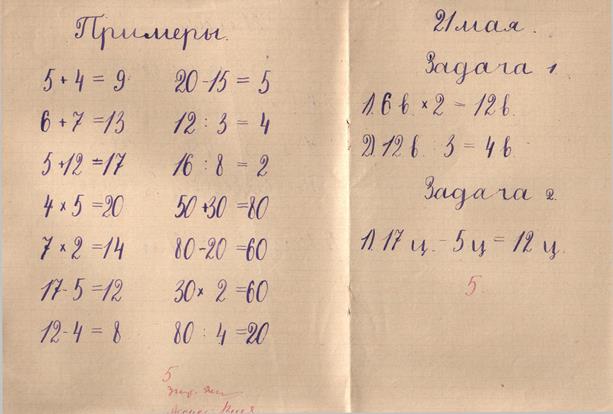 Примеры.
5 + 4 = 9
6 + 7 = 13
5 + 12 = 17
4 × 5 = 20
7 × 2 = 14
17 - 5 = 12
12 - 4 = 8
20 - 15 = 5
12 : 3 = 4
16 : 8 = 2
50 + 30 = 80
80 - 20 = 60
30 × 2 = 60
80 : 4 = 20
5
21 мая.
Задача 1.
1) 6 в. × 2 = 12 в.
2) 12 в. : 3 = 4 в.
Задача 2.
1) 17 ц. - 5 ц = 12 ц.
5.